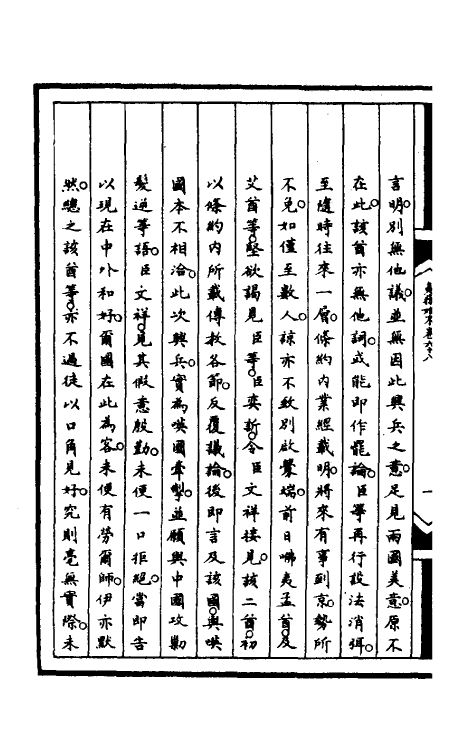 言明。別無他議。並無因此興兵之意。足見兩國美意。原不
在此。該酋亦無他詞。或能即作罷論。臣等再行設法消弭。
至隨時往來一層。條約內業經載明。將來有事到京。勢所
不免。如僅至數人。諒亦不致別啟釁端。前日㗦夷孟酋。及
艾酋等。堅欲謁見。臣等。臣奕訢。令臣文祥接見。該二酋。初
以條約內所載傳教各節。反覆議論。後即言及該國。與㗸
國本不相洽。此次興兵。實為㗸國牽掣。並願與中國攻勦
髮逆等語。臣文祥。見其假意殷勤。未便一口拒絕。當即告
以現在中外和好。爾國在此為客。未便有勞爾師。伊亦默
然。總之該酋等。亦不過徒以口角見好。究則毫無實際。未